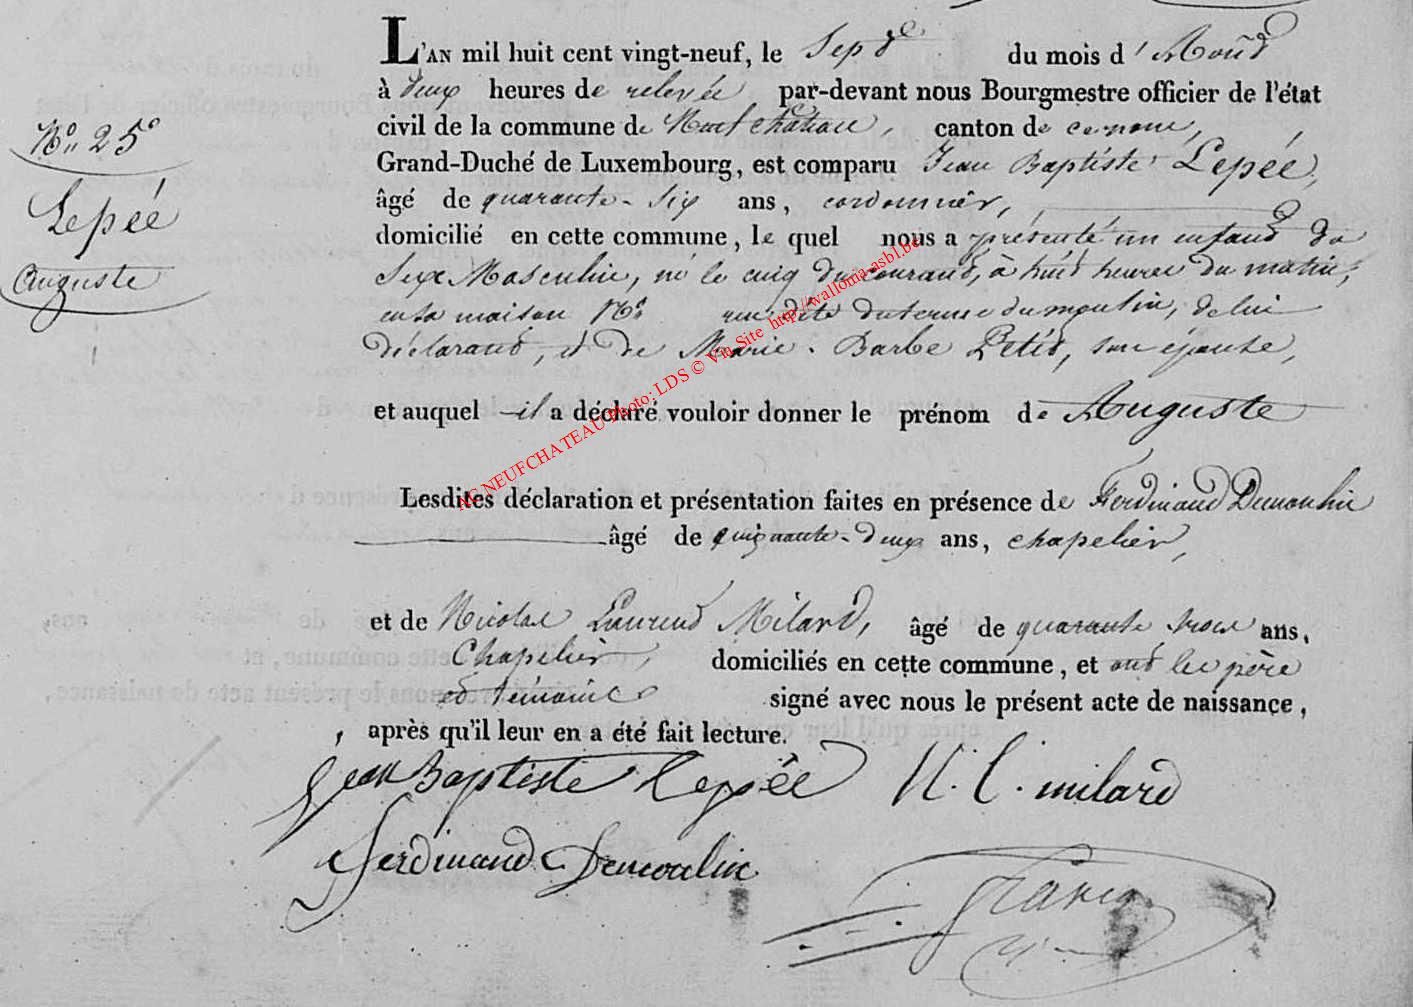 N.° 25°
Lepéé
Auguste
L'AN mil huit cent vingt-neuf, le Sept du mois d'Août
à deux heures de relevée par-devant nous Bourgmestre officier de l'état
civil de la commune de Neufchâteau, canton de ce nom,
Grand-Duché de Luxembourg, est comparu Jean Baptiste Lepéé,
âgé de quarante-six ans, cordonnier,
domicilié en cette commune, le quel nous a présenté un enfant du
Sexe Masculin, né le cinq du courant, à huit heures du matin,
en sa maison N.° rue dite du terme du moulin, de lui
déclarant, et de Marie-Barbe Petit, son épouse,
et auquel il a déclaré vouloir donner le prénom de Auguste
AC NEUFCHATEAU Photo: LDS © Via Site http://walloma-asbl.be
Lesdites déclaration et présentation faites en présence de Ferdinand Dumoulin
âgé de cinquante-deux ans, chapelier,
et de Nicolas Laurent Milard, âgé de quarante trois ans,
Chapelier, domiciliés en cette commune, et ont les père
et témoins signé avec nous le présent acte de naissance,
après qu'il leur en a été fait lecture.
Jean Baptiste Lepéé N. L. milard
Ferdinand Demoulin